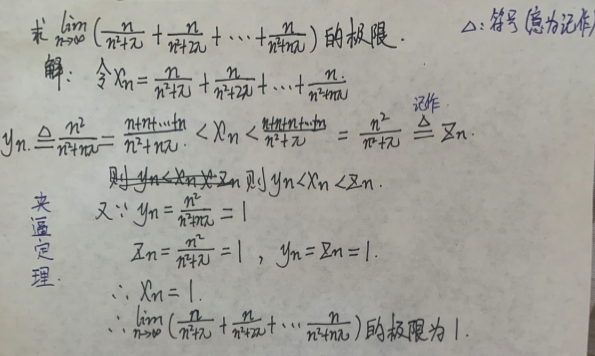 求 lim n→∞ (n/(n²+π) + n/(n²+2π) + ⋯ + n/(n²+nπ)) 的极限.
△: 符号(意为记作)
解: 令 Xn = n/(n²+π) + n/(n²+2π) + ⋯ + n/(n²+nπ)
记作
yn ≜ n²/(n²+nπ) = (n+n+⋯+n)/(n²+nπ) < Xn < (n+n+n+⋯+n)/(n²+π) = n²/(n²+π) ≜ Zn.
则 yn<Xn<Zn 则 yn<Xn<Zn.
夹逼定理.
又∵ yn = n²/(n²+nπ) = 1
Zn = n²/(n²+π) = 1 , yn = Zn = 1.
∴ Xn = 1.
∴ lim n→∞ (n/(n²+π) + n/(n²+2π) + ⋯ n/(n²+nπ)) 的极限为1.